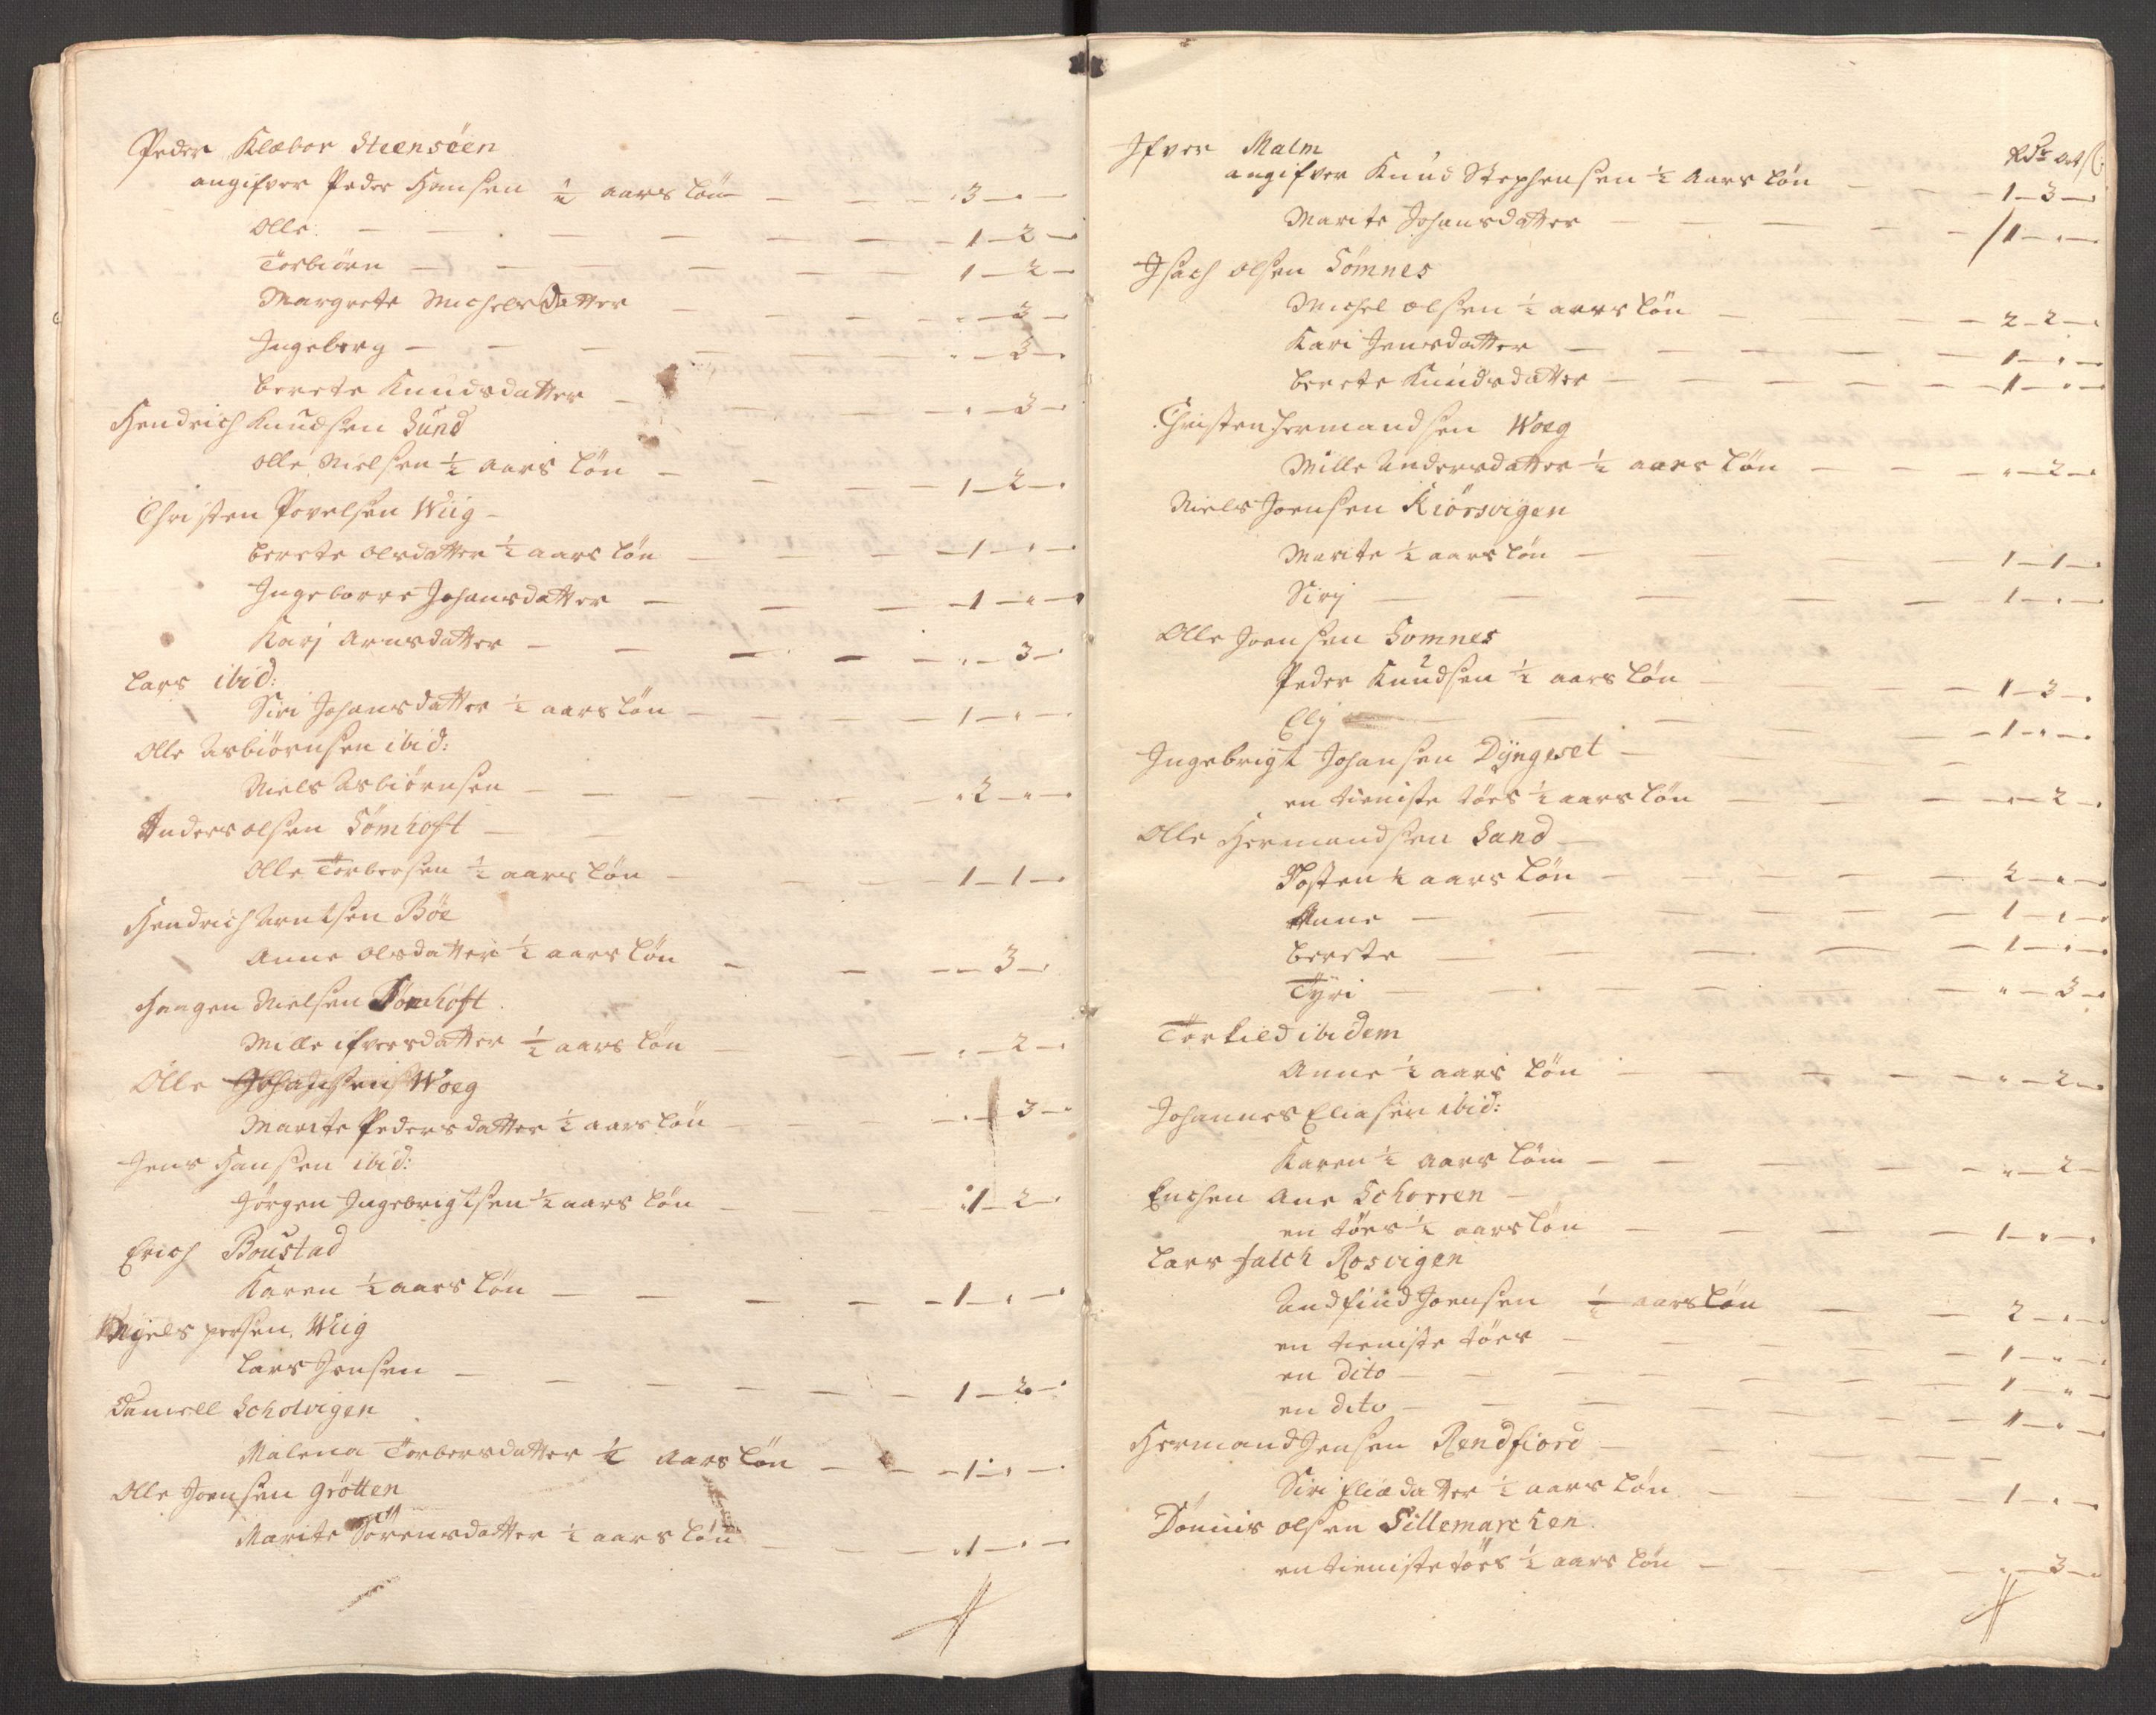 Peder Klæbor Steensöen
angifver Peder Hansen ½ aars löн — — — 3 — " —
Olle — — — — — 1 — 2 —
Torbiörn — — — — — 1 — 2 —
Margrete Michelsdatter — — — " — 3 —
Ingeborg — — — — — " — 3 —
berete Knudsdatter — — — " — 3 —
Hendrich Knudsen Sund
Olle Nielsen ½ aars Lön — — — 1 — 2 —
Christen Povelsen Wiig —
berete olsdatter ½ aars lön — — — 1 — " —
Ingeborre Johansdatter — — — 1 — " —
Karj Arnsdatter — — — " — 3 —
Lars ibid:
Siri Johansdatter ½ aars lön — — — 1 — " —
Olle Asbiörnsen ibid:
Niels Asbiörnsen — — — — 2 — " —
Anders olsen Sömhoft —
Olle Torbersen ½ aars lön — — — 1 — 1 —
Hendrich Arntsen Böe
Anne Olsdatter ½ aars lön — — — 3 —
Haagen Nielsen Sömhoft
Mille ifversdatter ½ aars lön — — — " — 2 —
Olle Johansens Woeg
Marite Pedersdatter ½ aars lön — — — " — 3 —
Jens Hansen ibid:
Jörgen Ingebrigtsen ½ aars lön — — — 1 — 2 —
Erich Boustad
Karen ½ aars lön — — — — 1 — " —
Niels persen Wiig
Lars Jensen — — — — 1 — 2 —
Daniell Scholvigen
Malena Torbersdatter ½ aars lön — — — 1 — " —
Olle Joensen grötten
Marite Sörensdatter ½ aars lön — — — 1 — " —
Ifver Malm
Rdr ort ß:
angifver Knud Stephensen ½ Aars lön — — — 1 — 3 —
Marite Johansdatter — — — — 1 — " —
Isach olsen Sömnes
Michel olsen ½ aars lön — — — 2 — 2 —
Kari Jensdatter — — — — 1 — " —
berete Knudsdatter — — — — 1 — " —
Christen Hermandsen Woeg
Mille Andersdatter ½ aars lön — — — " — 2 —
Niels Joensen Kiörsvigen
Marite ½ aars lön — — — 1 — 1 —
Sirj — — — — 1 — " —
Olle Joensen Somnes
Peder Knudsen ½ aars lön — — — 1 — 3 —
Elj — — — — 1 — " —
Ingebrigt Johansen Dÿngeset —
en tieniste töes ½ aars lön — — — " — 2 —
Olle Hermandsen Sand —
Tosten ½ aars Lön — — — 2 — " —
Anne — — — — 1 — " —
berete — — — — 1 — " —
Tyri — — — — " — 3 —
Torkild ibidem
Anne ½ aars lön — — — " — 2 —
Johannes Eliasen ibid:
Karen ½ aars lön — — — " — 2 —
Enchen Ane Schorren —
en töes ½ aars lön — — — 1 — " —
Lars falch Rosvigen
Andfind Joensen ½ aars lön — — — 2 — " —
en tieniste töes — — — 1 — " —
en dito — — — — 1 — " —
en dito — — — — 1 — " —
Hermand Jensen Rendfiord —
Siri Eliædatter ½ aars lön — — — 1 — " —
Dönnis olsen Sillemarcken
en tieniste töes ½ aars lön — — — " — 3 —